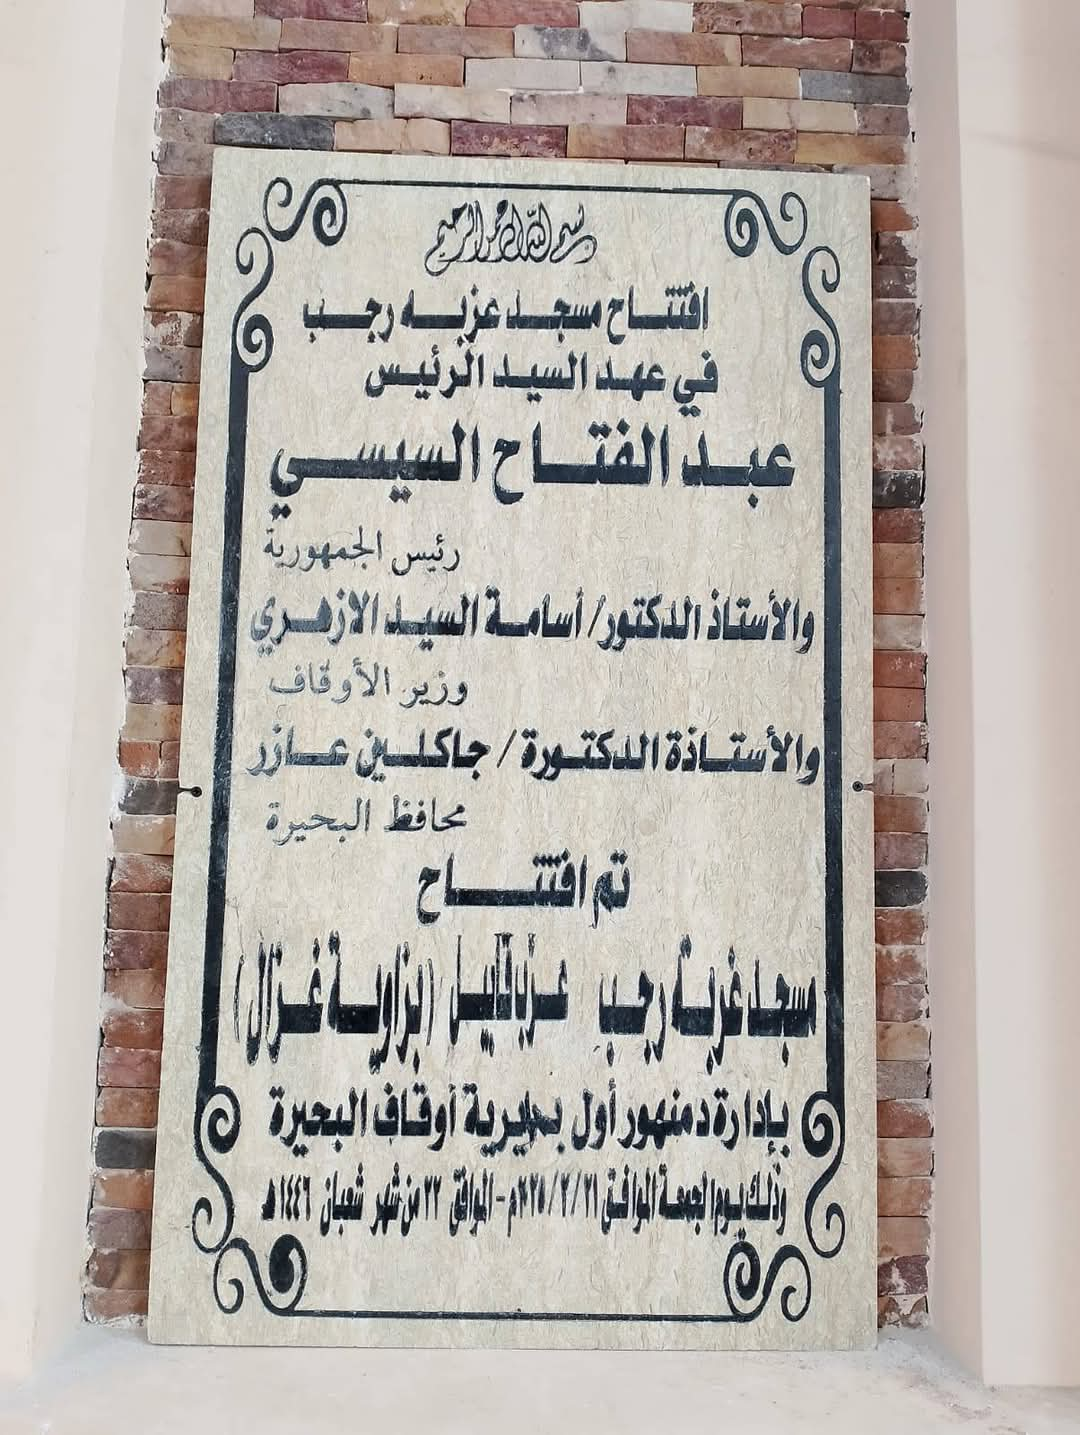 بسم الله الرحمن الرحيم
افتتاح مسجد عزبه رجب
في عهد السيد الرئيس
عبد الفتاح السيسي
رئيس الجمهورية
والأستاذ الدكتور/ أسامة السيد الازهري
وزير الأوقاف
والأستاذة الدكتورة / جاكلين عازر
محافظ البحيرة
تم افتتاح
مسجد غربة رجب (بزاوية غزال)
بإدارة دمنهور أول بمديرية أوقاف البحيرة
وذلك يوم الجمعة الموافق ٢١/٢/٢٠٢٥م - الموافق ٢٢ من شهر شعبان ١٤٤٦هـ